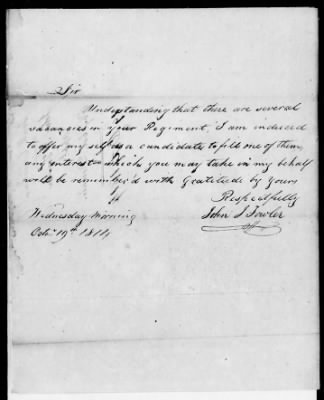 Sir
Understanding that there are several
vacancies in your Regiment, I am induced
to offer my self as a candidate to fill one of them,
any interest which you may take in my behalf
will be remember'd with Gratitude by Yours
Respectfully
John S Fowler
Wednesday Morning
Octr 19th 1814